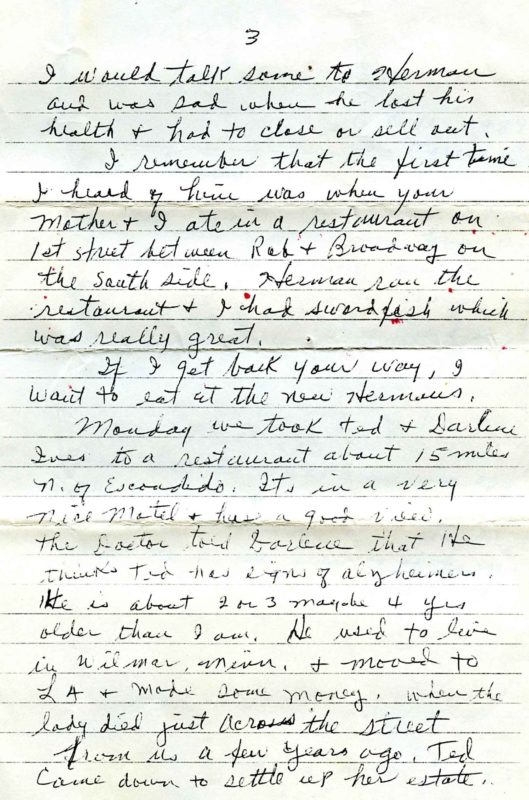 3
I would talk some to Herman
and was sad when he lost his
health & had to close or sell out.
I remember that the first time
I heard of him was when your
Mother & I ate in a restaurant on
1st street between Rob & Broadway on
the South side. Herman ran the
restaurant & I had swordfish which
was really great.
If I get back your way, I
want to eat at the new Hermans.
Monday we took Ted & Darlene
Ives to a restaurant about 15 miles
N. of Escondido. Its in a very
nice Motel & has a good view.
The Doctor told Darlene that He
thinks Ted has signs of alzheimers.
He is about 2 or 3 maybe 4 yrs
older than I am. He used to live
in Wilmar, Minn. & moved to
LA & made some money. When the
lady died just across the street
from us a few years ago, Ted
Came down to settle up her estate.